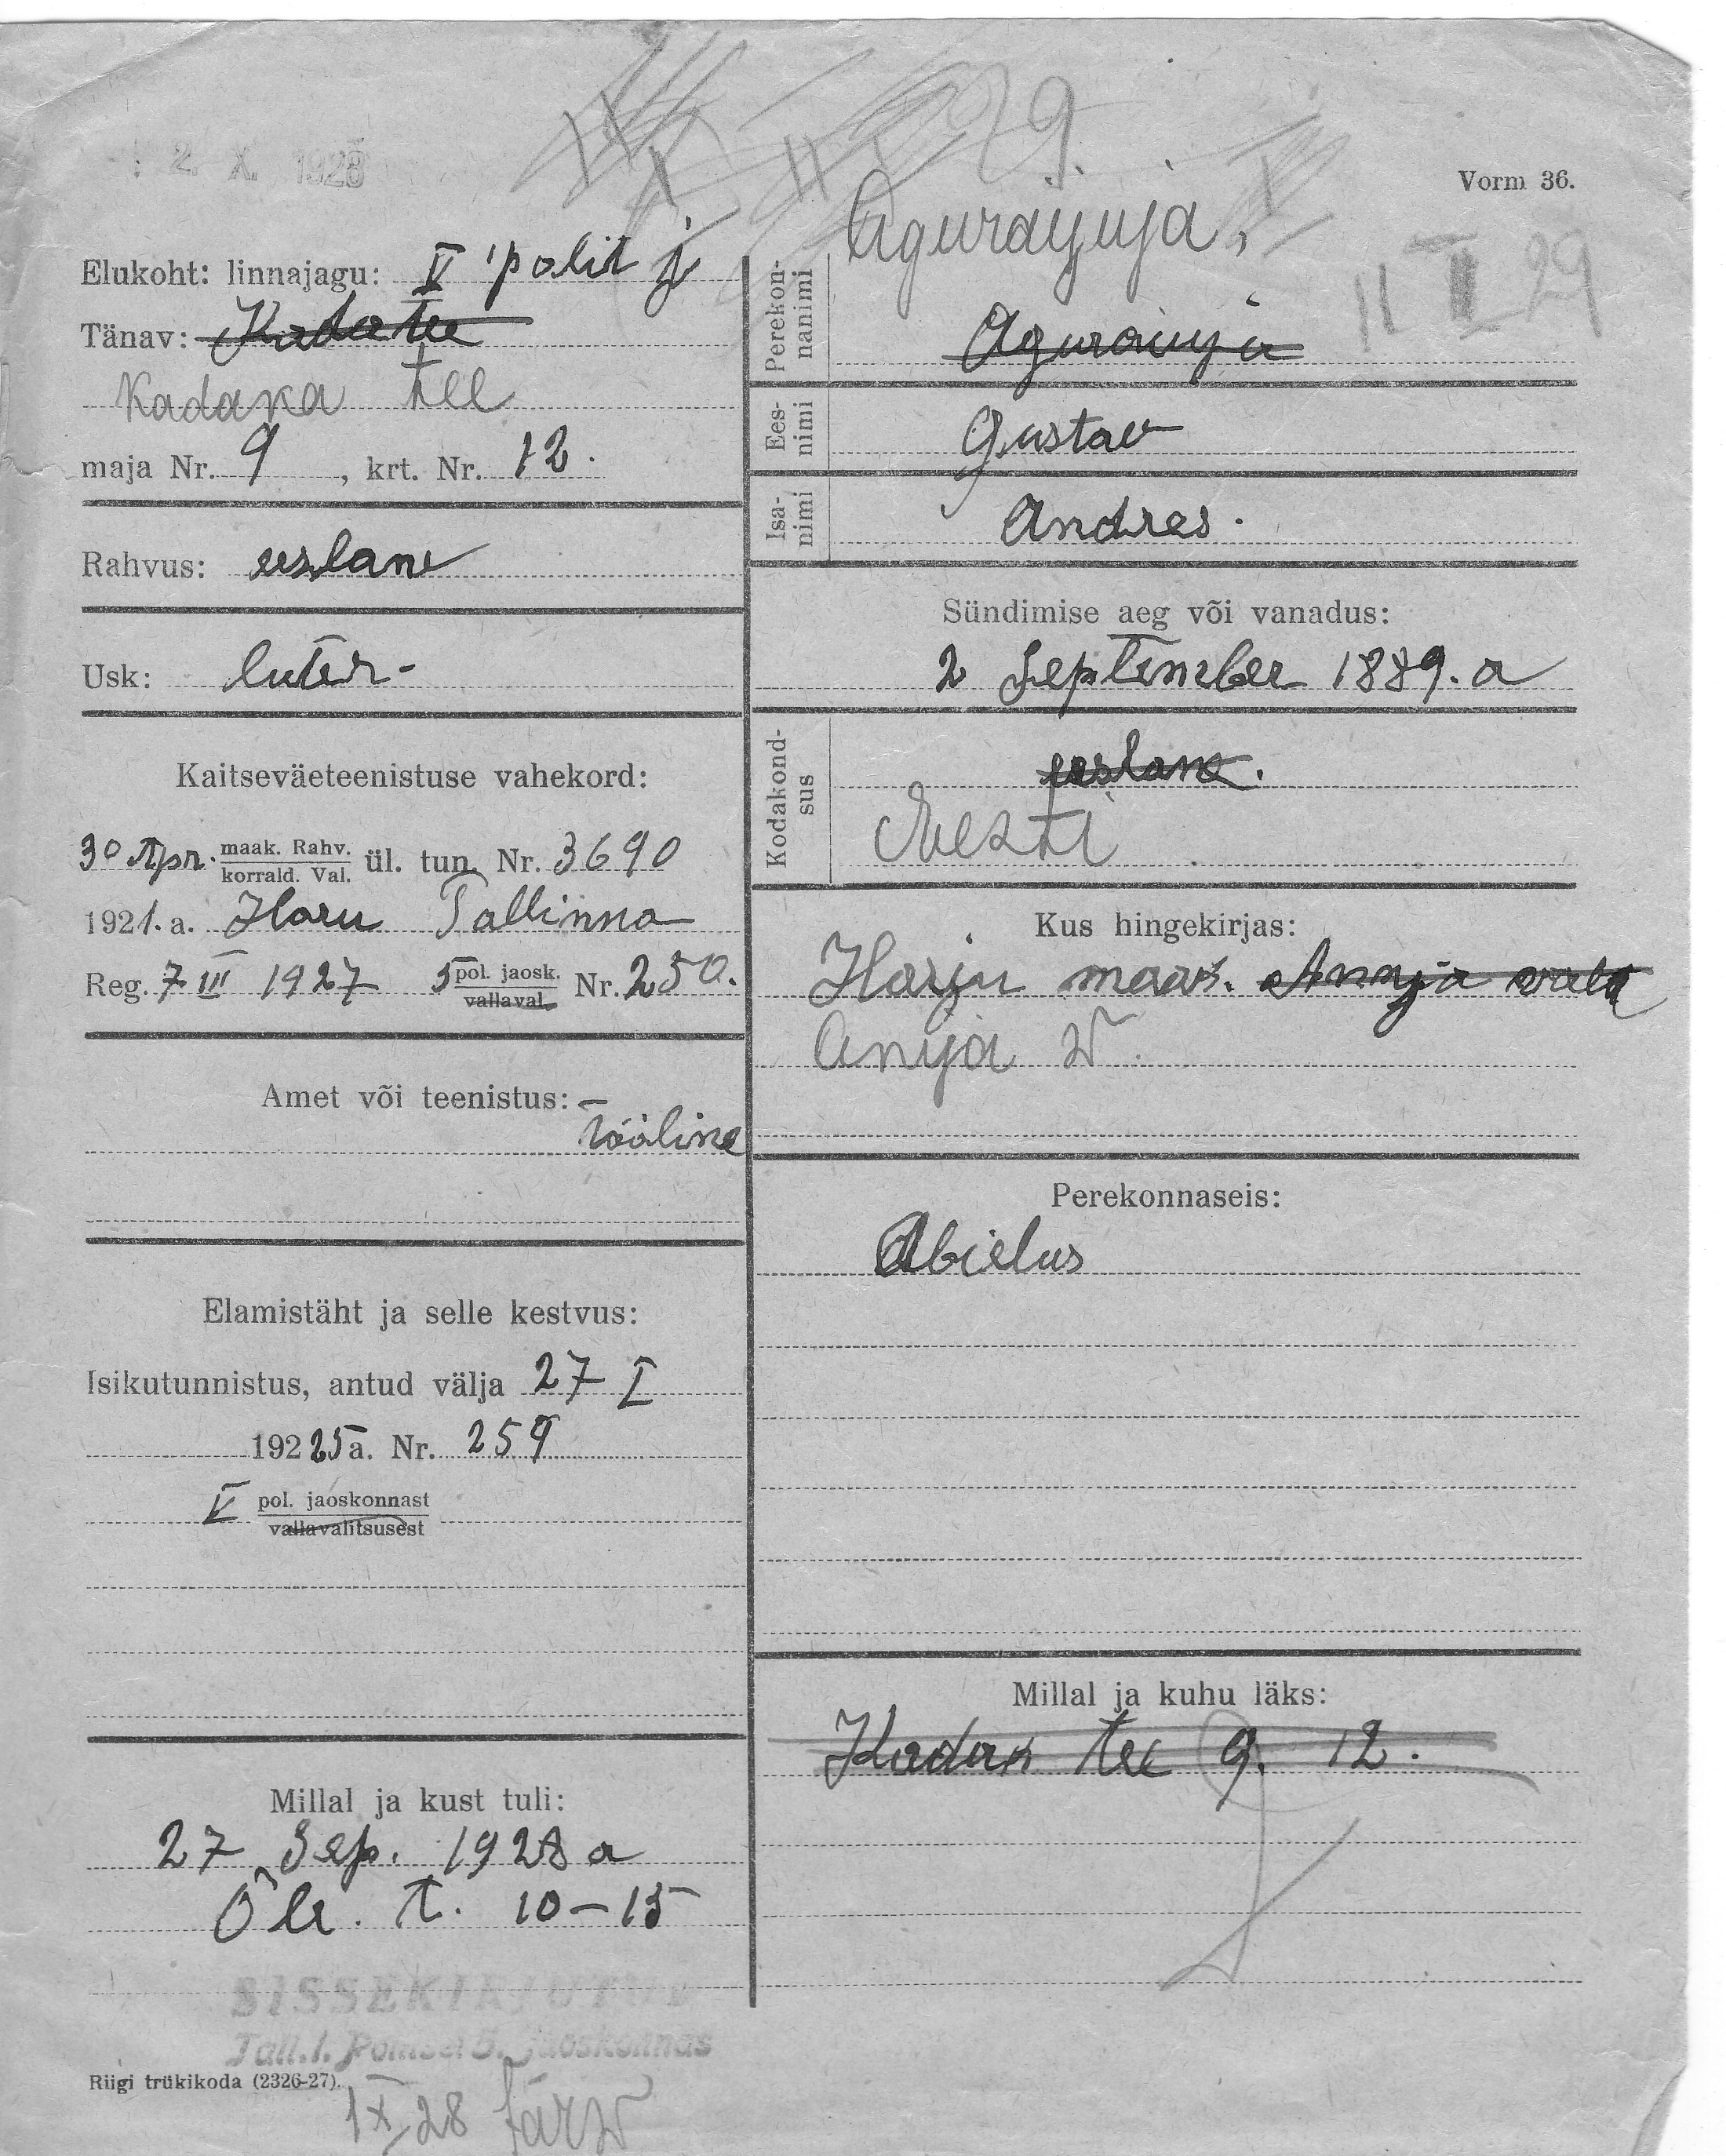 2. X. 1928
29.
Vorm 36.
Elukoht: linnajagu: V polit j
Tänav: Kadatee
Kadaka tee
maja Nr. 9, krt. Nr. 12.
Rahvus: eeslane
Usk: luter-
Kaitseväeteenistuse vahekord:
30 Apr. maak. Rahv. ül. tun. Nr. 3690
korrald. Val.
1921. a. Haru Tallinna
Reg. 7 III 1927 5 pol. jaosk. Nr. 250.
vallaval.
Amet või teenistus:
tööline
Elamistäht ja selle kestvus:
Isikutunnistus, antud välja 27 I
192 25 a. Nr. 259
V pol. jaoskonnast
vallavalitsusest
Millal ja kust tuli:
27 Sep. 1928 a
Õle. t. 10-15
SISSEKIRJUTUD
Tall.l. Politsei 5. jaoskonnas
Riigi trükikoda (2326-27).
1X 28 Järw
Aguraiuja,
II II 29
Perekon-
nanimi
Aguraiuja
Ees-
nimi
Gustav
Isa-
nimi
Andres.
Sündimise aeg või vanadus:
2 September 1889. a
Kodakond-
sus
eeslane.
Eesti
Kus hingekirjas:
Harju maak. Annja vald
Anija w.
Perekonnaseis:
Abielus
Millal ja kuhu läks:
Kadak tee 9. 12.